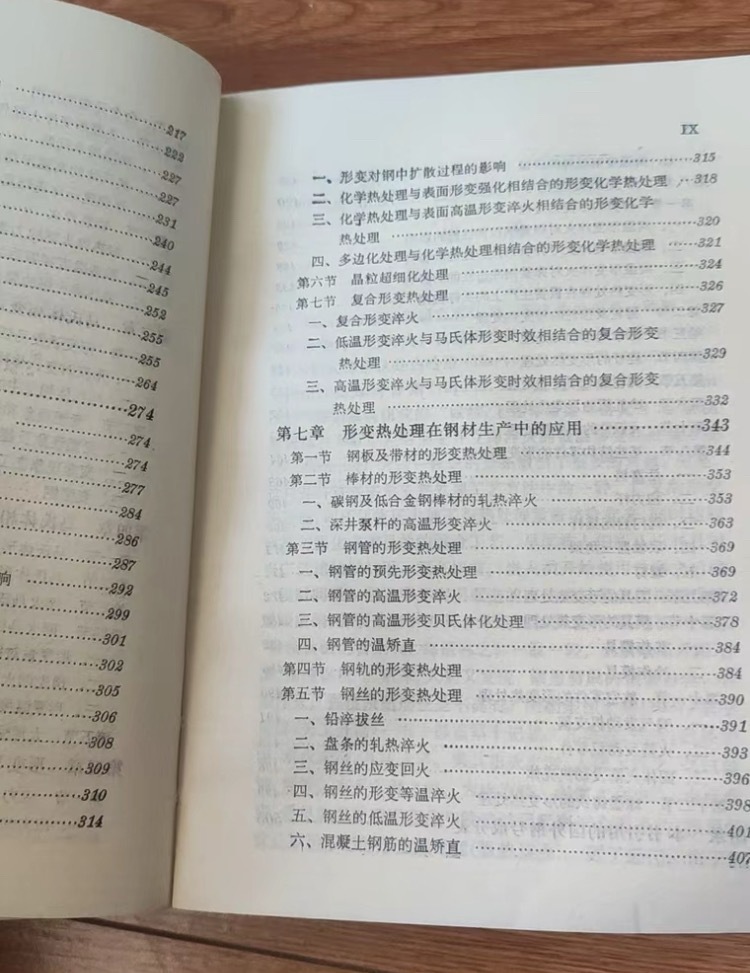 217
222
227
227
231
240
244
245
252
255
255
264
274
274
274
277
284
286
287
响 292
299
301
302
305
306
308
309
310
314
IX
一、形变对钢中扩散过程的影响 315
二、化学热处理与表面形变强化相结合的形变化学热处理 318
三、化学热处理与表面高温形变淬火相结合的形变化学
热处理 320
四、多边化处理与化学热处理相结合的形变化学热处理 321
第六节 晶粒超细化处理 324
第七节 复合形变热处理 326
一、复合形变淬火 327
二、低温形变淬火与马氏体形变时效相结合的复合形变
热处理 329
三、高温形变淬火与马氏体形变时效相结合的复合形变
热处理 332
第七章 形变热处理在钢材生产中的应用 343
第一节 钢板及带材的形变热处理 344
第二节 棒材的形变热处理 353
一、碳钢及低合金钢棒材的轧热淬火 353
二、深井泵杆的高温形变淬火 363
第三节 钢管的形变热处理 369
一、钢管的预先形变热处理 369
二、钢管的高温形变淬火 372
三、钢管的高温形变贝氏体化处理 378
四、钢管的温矫直 384
第四节 钢轨的形变热处理 384
第五节 钢丝的形变热处理 390
一、铅淬拔丝 391
二、盘条的轧热淬火 393
三、钢丝的应变回火 396
四、钢丝的形变等温淬火 398
五、钢丝的低温形变淬火 401
六、混凝土钢筋的温矫直 407